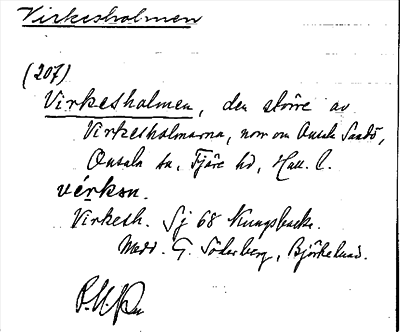 Virkesholmen
(207)
Virkesholmen, den större av
Virkesholmarna, norr om Onsala Sandö,
Onsala sn, Fjäre hd, Hall. l.
vérkən.
Virkesh. Sj 68 Kungsbacka.
Medd. G. Söderberg, Björkelund.